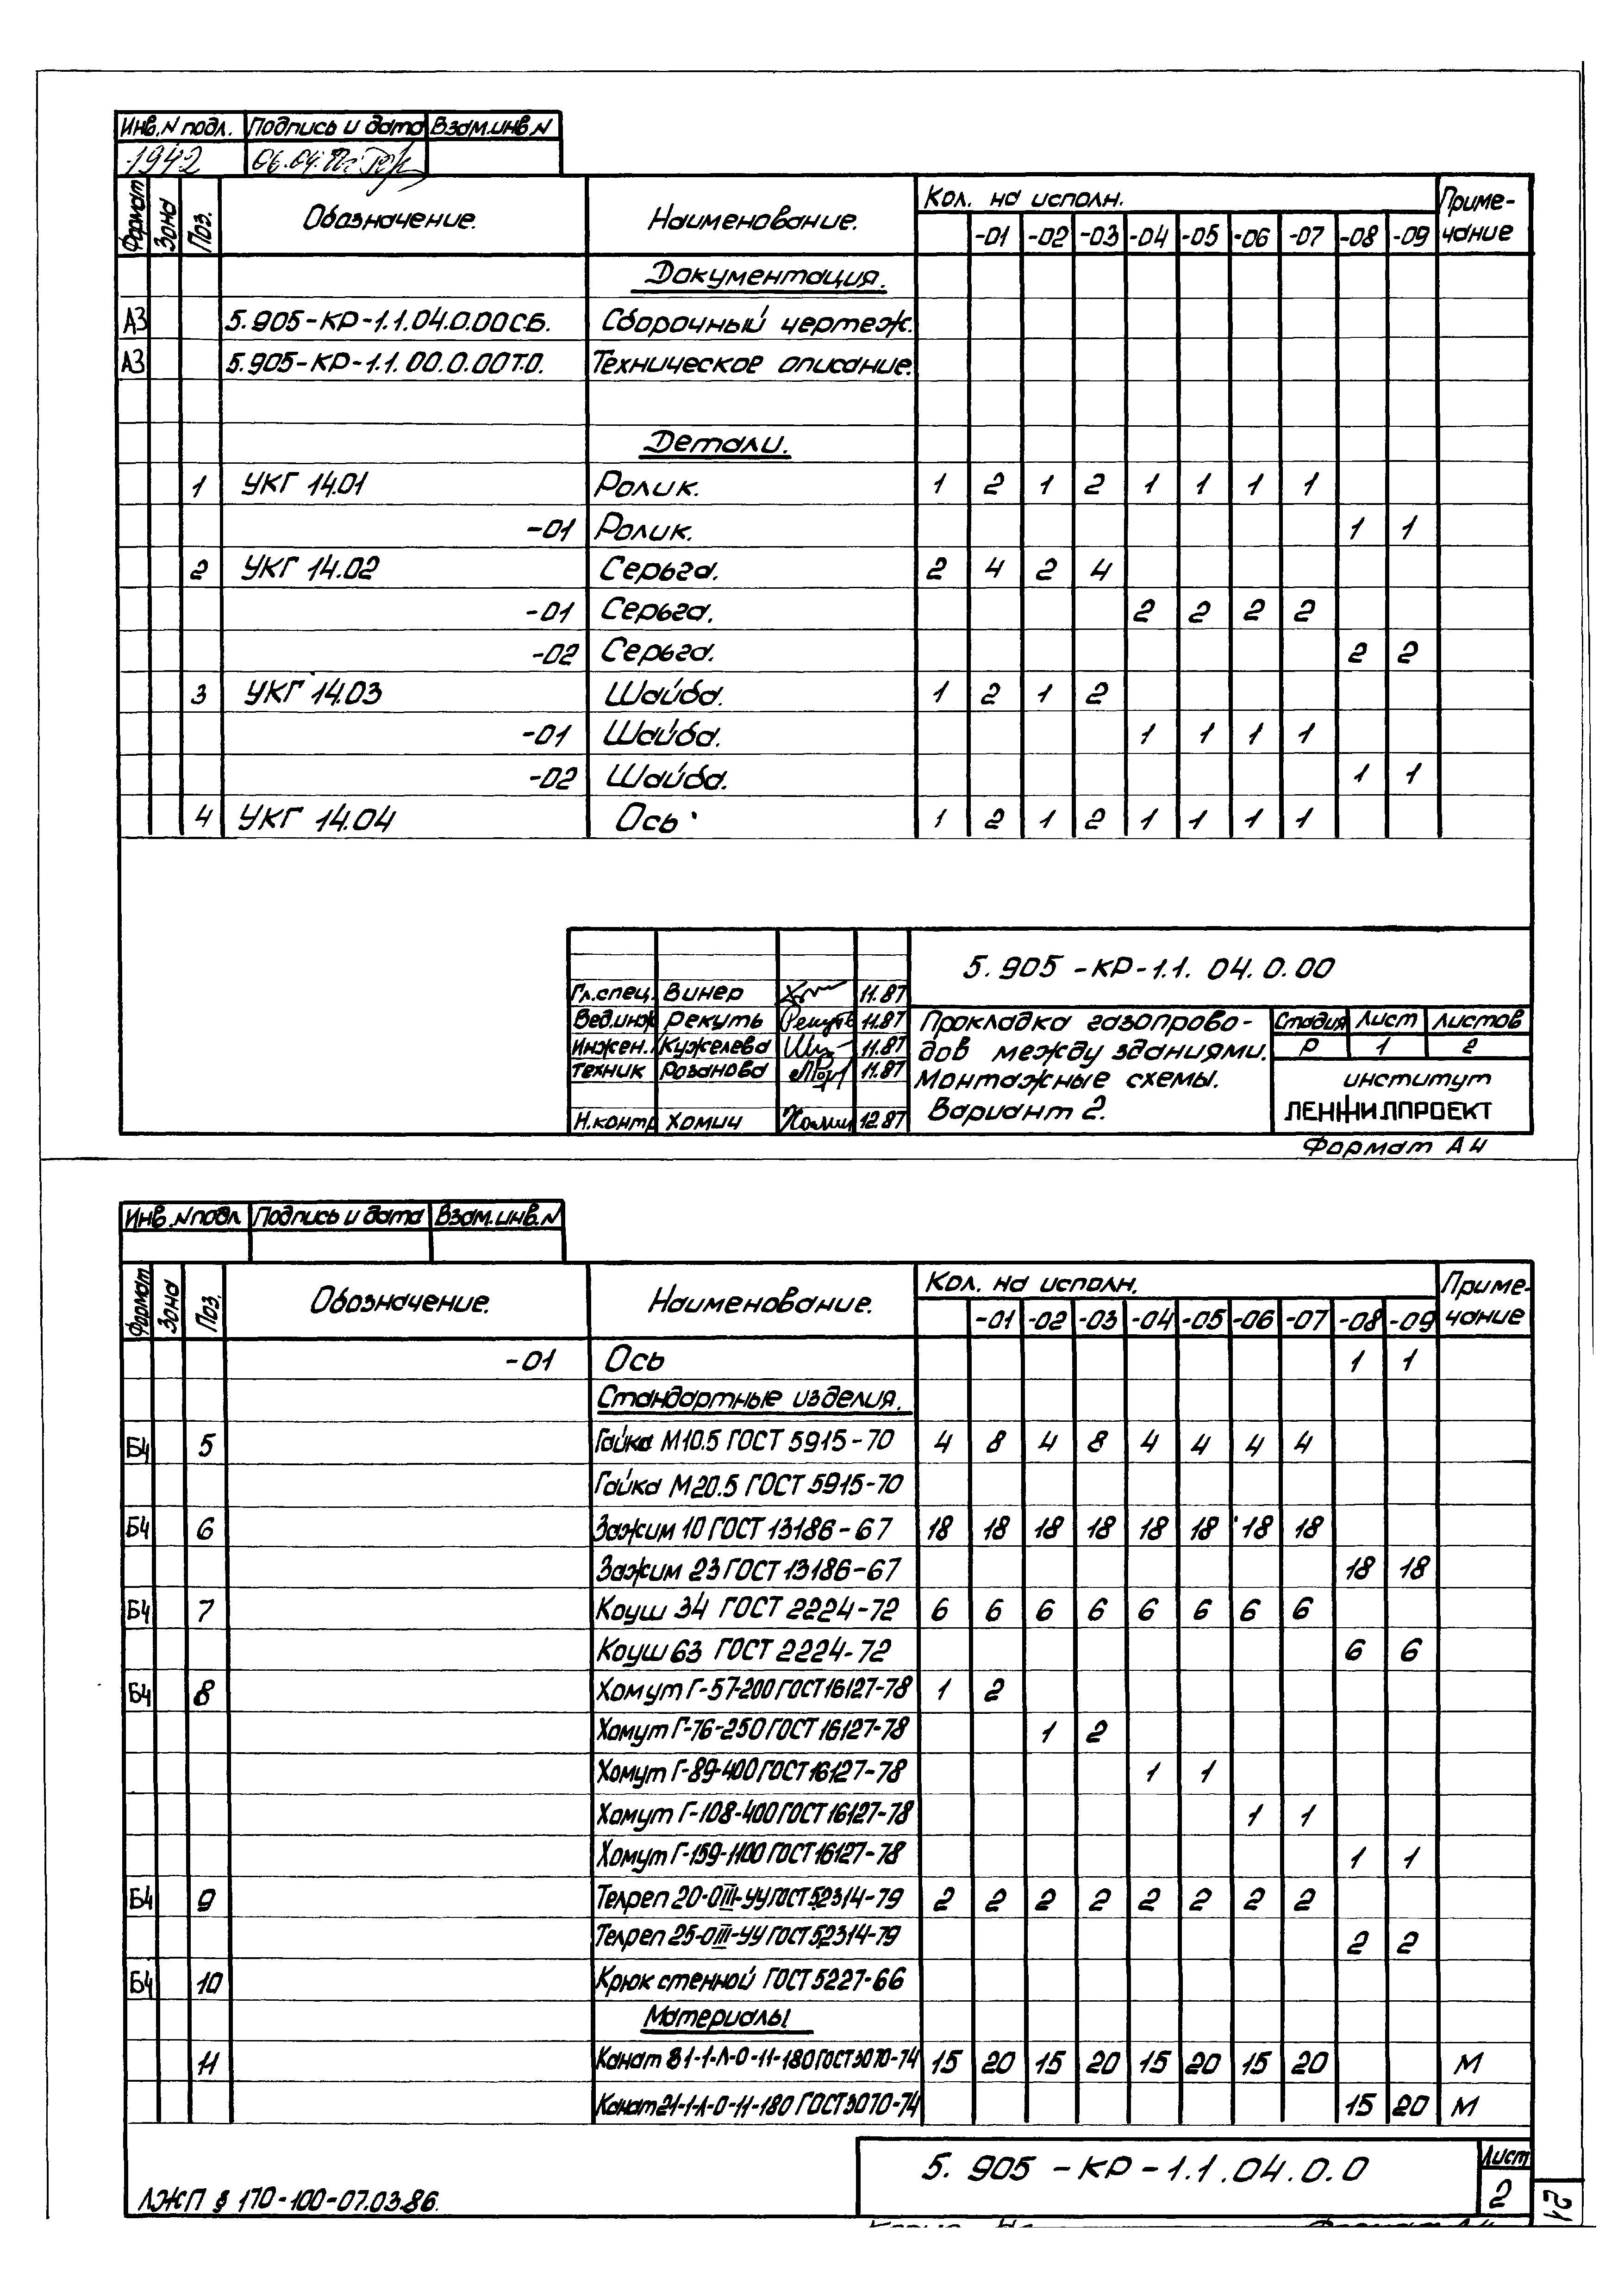 Инв.N подл. Подпись и дата Взам.инв.N
1942
Формат Зона Поз. Обозначение. Наименование. Кол. на исполн. Приме-
чание
-01 -02 -03 -04 -05 -06 -07 -08 -09
Документация.
А3 5.905-КР-1.1.04.0.00СБ. Сборочный чертеж.
А3 5.905-КР-1.1.00.0.00Т.О. Техническое описание.
Детали.
1 УКГ 14.01 Ролик. 1 2 1 2 1 1 1 1
-01 Ролик. 1 1
2 УКГ 14.02 Серьга. 2 4 2 4
-01 Серьга. 2 2 2 2
-02 Серьга. 2 2
3 УКГ 14.03 Шайба. 1 2 1 2
-01 Шайба. 1 1 1 1
-02 Шайба. 1 1
4 УКГ 14.04 Ось 1 2 1 2 1 1 1 1
5.905-КР-1.1.04.0.00
Гл.спец. Винер 11.87
Вед.инж Рекуть Рекуть 11.87
Инжен. Кужелева 11.87
Техник Розанова 11.87
Н.контр Хомич Хомич 12.87
Прокладка газопрово-
дов между зданиями.
Монтажные схемы.
Вариант 2.
Стадия Лист Листов
Р 1 2
институт
ЛЕНЖИЛПРОЕКТ
Формат А4
Инв.N подл Подпись и дата Взам.инв.N
Формат Зона Поз. Обозначение. Наименование. Кол. на исполн. Приме-
чание
-01 -02 -03 -04 -05 -06 -07 -08 -09
-01 Ось 1 1
Стандартные изделия.
Б4 5 Гайка М10.5 ГОСТ 5915-70 4 8 4 8 4 4 4 4
Гайка М20.5 ГОСТ 5915-70
Б4 6 Зажим 10 ГОСТ 13186-67 18 18 18 18 18 18 18 18
Зажим 23 ГОСТ 13186-67 18 18
Б4 7 Коуш 34 ГОСТ 2224-72 6 6 6 6 6 6 6 6
Коуш 63 ГОСТ 2224-72 6 6
Б4 8 Хомут Г-57-200 ГОСТ 16127-78 1 2
Хомут Г-76-250 ГОСТ 16127-78 1 2
Хомут Г-89-400 ГОСТ 16127-78 1 1
Хомут Г-108-400 ГОСТ 16127-78 1 1
Хомут Г-159-1100 ГОСТ 16127-78 1 1
Б4 9 Телреп 20-ОIII-УУ ГОСТ 52314-79 2 2 2 2 2 2 2 2
Телреп 25-ОIII-УУ ГОСТ 52314-79 2 2
Б4 10 Крюк стенной ГОСТ 5227-66
Материалы
11 Канат 81-1-Л-О-Н-180 ГОСТ 3070-74 15 20 15 20 15 20 15 20 М
Канат 21-1-Л-О-Н-180 ГОСТ 3070-74 15 20 М
5.905-КР-1.1.04.0.0
Лист
2
ЛЖП § 170-100-07.03.86.
21